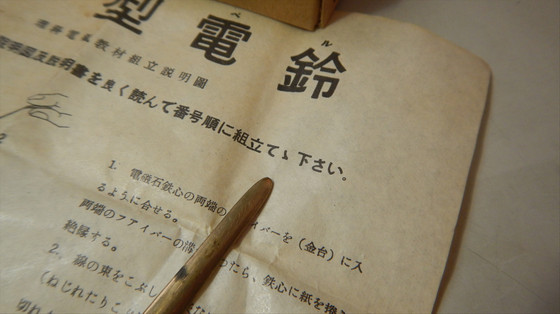 型電鈴
ベル
電気教材組立説明図
説明書を良く読んで番号順に組立てゝ下さい。
1. 電磁石鉄心の両端の
イバーを(金台)に入
るように合せる。
両端のファイバーの溝
ったら、鉄心に紙を挿
絶縁する。
2. 線の束をこぶし
(ねじれたりこ
切れ